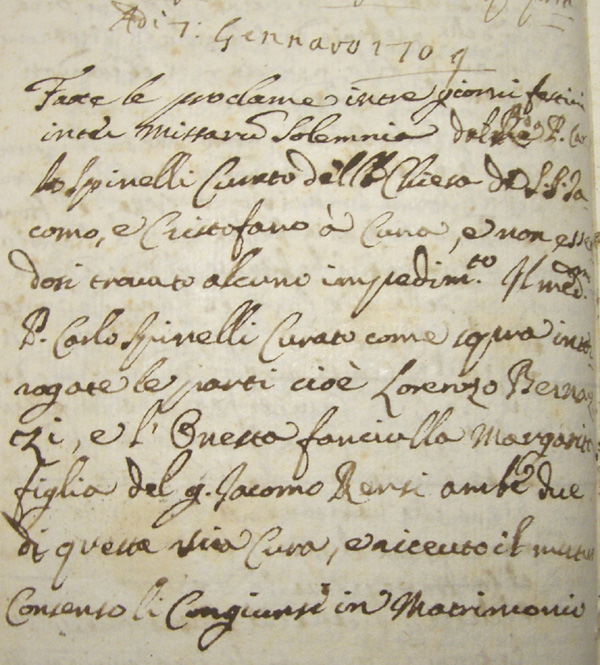 Adi 7: Gennaro 1709
Fatte le proclame in tre giorni festivi
inter Missarū Solemnia dal P. Car
lo Spinelli Curato della Chiesa di S.S. Ja
como, e Cristofano à Cura, e non essen
dosi trovato alcuno impedim.to Il med.mo
P. Carlo Spinelli Curato come sopra inter
rogate le parti cioè Lorenzo Bernaz
zi, e l' Onesta fanciulla Margarita
figlia del q. Jacomo Rensi ambe due
di questa Cura, e riceuto il mutuo
Consenso li Congiunsi in Matrimonio